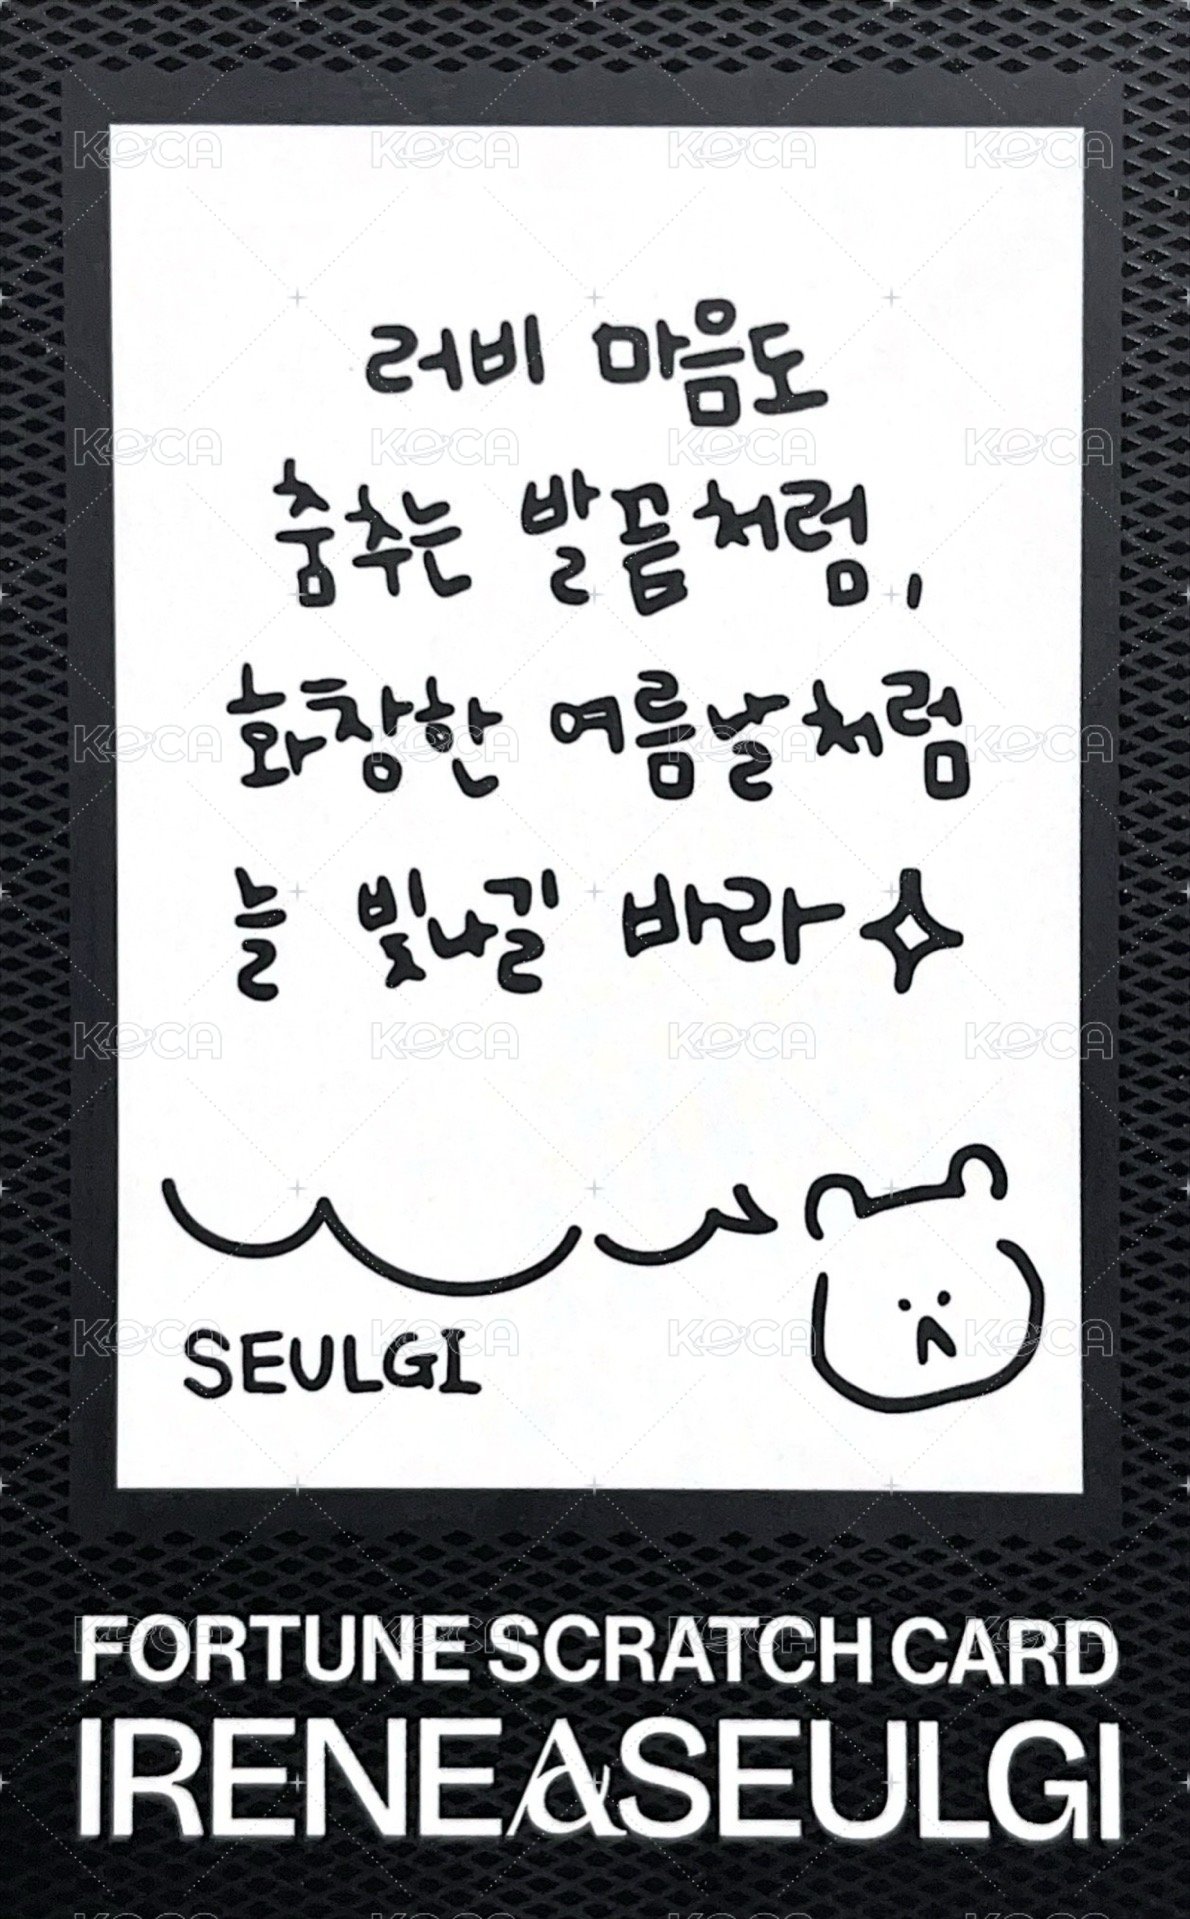 러비 마음도
춤추는 발끝처럼,
화창한 여름날처럼
늘 빛나길 바라
SEULGI
FORTUNE SCRATCH CARD
IRENE&SEULGI
KOCA